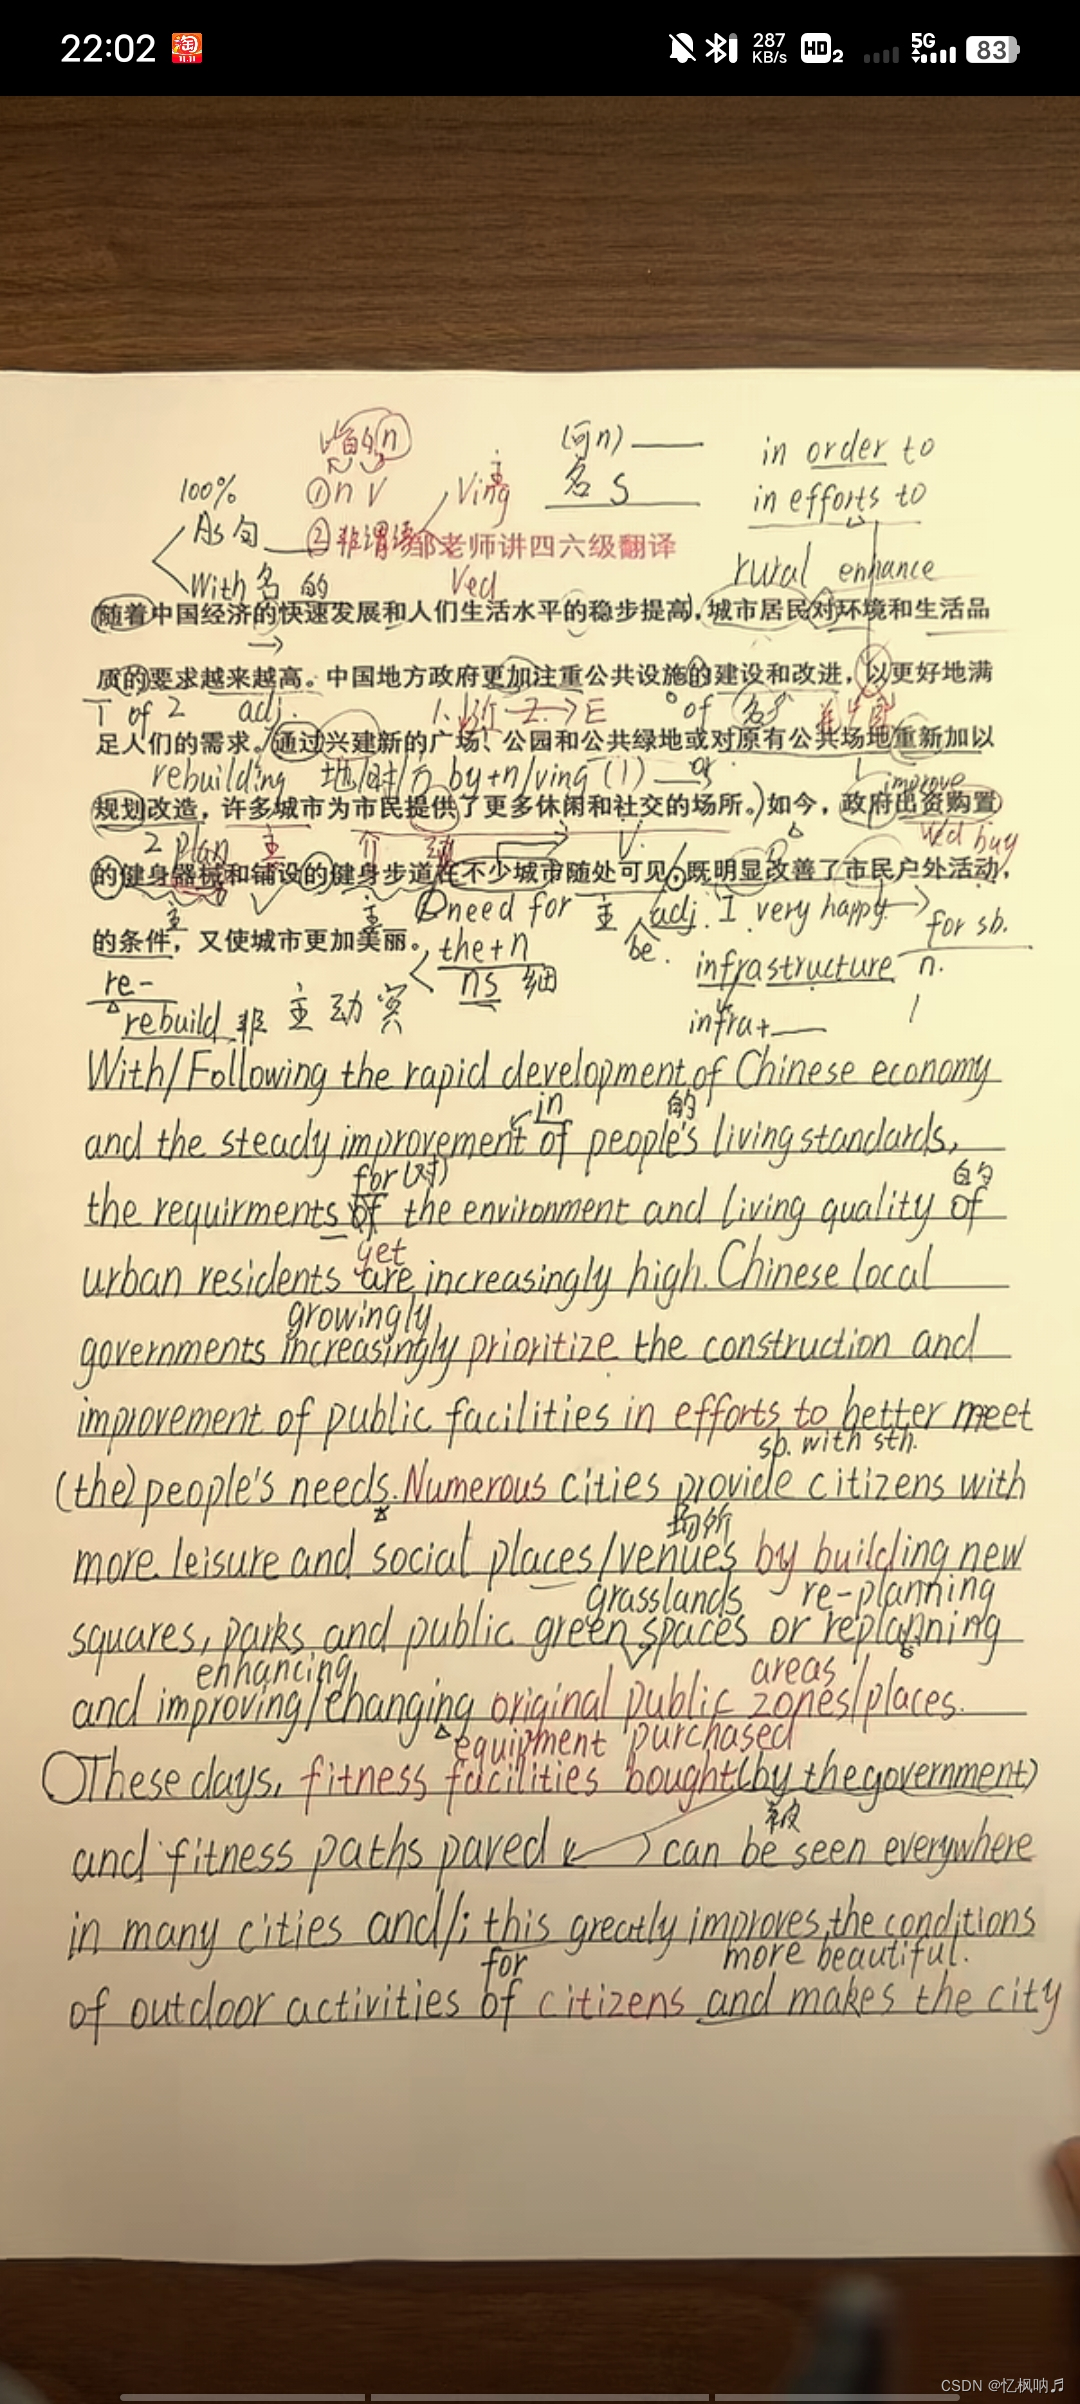 22:02
淘
11.11
287
KB/s
HD 2
5G
83
的 n
(n) ——
in order to
100%
① n v
Ving
主
名 S
in efforts to
As 句
② 非谓语
邹老师讲四六级翻译
With 名 的
Ved
rural enhance
随着中国经济的快速发展和人们生活水平的稳步提高,城市居民对环境和生活品
质的要求越来越高。中国地方政府更加注重公共设施的建设和改进,以更好地满
1 of 2 adj.
1. 2. → E
of 名
足人们的需求。通过兴建新的广场、公园和公共绿地或对原有公共场地重新加以
rebuilding 地/时/方 by+n/ving (1) — or
improve
规划改造,许多城市为市民提供了更多休闲和社交的场所。如今,政府出资购置
2 plan 主 V.
Ved buy
的健身器械和铺设的健身步道在不少城市随处可见,既明显改善了市民户外活动,
主 主 need for 主 adj. I very happy
for sb.
的条件,又使城市更加美丽。
the+n
be.
infrastructure n.
re-
ns
rebuild 非 主 动 宾
infra+ ——
With/Following the rapid development of Chinese economy
in 的
and the steady improvement of people's living standards,
for(对) 的
the requirments of the environment and living quality of
get
urban residents are increasingly high. Chinese local
growingly
governments increasingly prioritize the construction and
improvement of public facilities in efforts to better meet
sb. with sth.
(the) people's needs. Numerous cities provide citizens with
场所
more leisure and social places/venues by building new
grasslands re-planning
squares, parks and public green spaces or replanning
enhancing areas
and improving/changing original public zones/places.
equipment purchased
These days, fitness facilities bought (by the government)
被
and fitness paths paved can be seen everywhere
in many cities and/; this greatly improves the conditions
for more beautiful.
of outdoor activities of citizens and makes the city
CSDN @忆枫呐♬